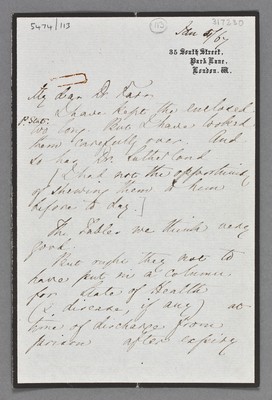 5474/113
112
Jan 4/67
35 South Street,
Park Lane,
London. W.
My dear Dr. Farr
I have kept the enclosed
too long. But I have looked
them carefully over. And
so has Dr. Sutherland
[I had not the opportunity
of shewing them to him
before to day.]
The Tables we think very
good.
But ought they not to
have put in a column
for State of Health
(& disease, if any) at
time of discharge from
prison after expiry